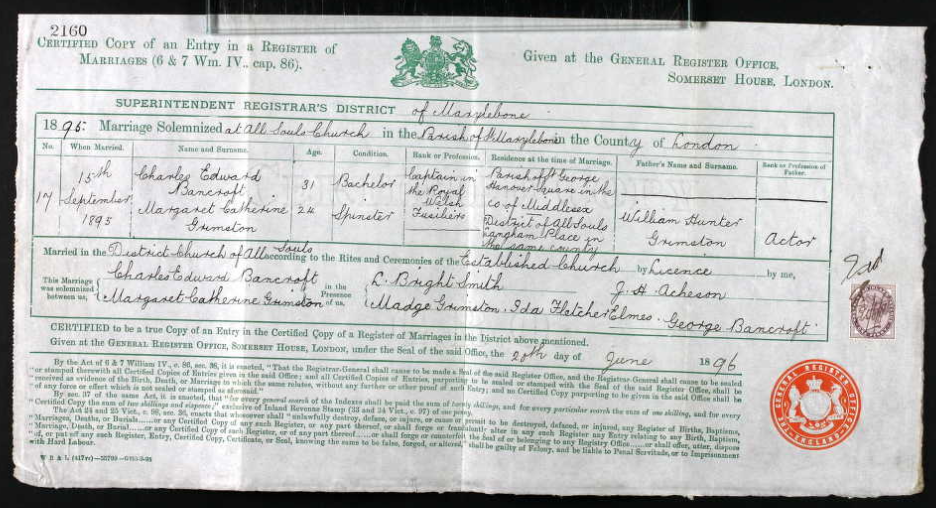 2160
CERTIFIED COPY OF AN ENTRY IN A REGISTER OF
MARRIAGES (6 & 7 WM. IV., CAP. 86).
Given at the GENERAL REGISTER OFFICE,
SOMERSET HOUSE, LONDON.
SUPERINTENDENT REGISTRAR'S DISTRICT of Marylebone
1895. Marriage Solemnized at All Souls Church in the Parish of St Marylebone in the County of London
No. When Married. Name and Surname. Age. Condition. Rank or Profession. Residence at the time of Marriage. Father's Name and Surname. Rank or Profession of Father.
17
15th
September
1895
Charles Edward
Bancroft
31
Bachelor
Captain in
the Royal
Welsh
Fusiliers
Parish of St George
Hanover Square in the
co of Middlesex
Margaret Catherine
Grimston
24
Spinster
District of All Souls
Langham Place in
the same county
William Hunter
Grimston
Actor
Married in the District Church of All Souls according to the Rites and Ceremonies of the Established Church by Licence by me,
This Marriage was solemnized between us,
Charles Edward Bancroft
Margaret Catherine Grimston
in the Presence of us,
L. Bright Smith
J. H. Acheson
Madge Grimston. Ida Fletcher Elmes. George Bancroft.
CERTIFIED to be a true Copy of an Entry in the Certified Copy of a Register of Marriages in the District above mentioned.
Given at the GENERAL REGISTER OFFICE, SOMERSET HOUSE, LONDON, under the Seal of the said Office, the 20th day of June 1896
By the Act of 6 & 7 William IV., c. 86, sec. 38, it is enacted, "That the Registrar-General shall cause to be made a Seal of the said Register Office, and the Registrar-General shall cause to be sealed
"or stamped therewith all Certified Copies of Entries given in the said Office; and all Certified Copies of Entries, purporting to be sealed or stamped with the Seal of the said Register Office, shall be
"received as evidence of the Birth, Death, or Marriage to which the same relates, without any further or other proof of such Entry; and no Certified Copy purporting to be given in the said Office shall be
"of any force or effect which is not sealed or stamped as aforesaid."
By sec. 37 of the same Act, it is enacted, that "for every general search of the Indexes shall be paid the sum of twenty shillings, and for every particular search the sum of one shilling, and for every
"Certified Copy the sum of two shillings and sixpence;" exclusive of Inland Revenue Stamp (33 and 34 Vict., c. 97) of one penny.
The Act 24 and 25 Vict., c. 98, sec. 36, enacts that whosoever shall "unlawfully destroy, deface, or injure, or cause or permit to be destroyed, defaced, or injured, any Register of Births, Baptisms,
"Marriages, Deaths, or Burials
with Hard Labour.
GENERAL REGISTER OFFICE
ENGLAND